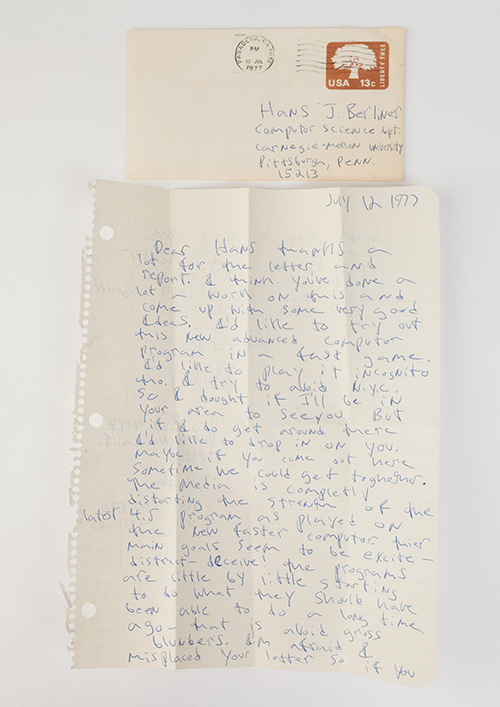 PASADENA, CA
PM
13 JUL
1977
USA 13c
LIBERTY TREE
Hans J. Berliner
Computer Science Dpt.
Carnegie-Mellon University
Pittsburgh, Penn.
15213
July 12 1977
Dear Hans thanks a
lot for the letter and
report. I think you've done a
lot a work on this and
come up with some very good
ideas. I'd like to try out
this new advanced computor
program in a fast game.
I'd like to play it incognito
tho. I try to avoid N.Y.C.
so I dought if I'll be in
your area to see you. But
if I do get around there
I'd like to drop in on you.
Maybe if you come out here
sometime we could get toghether.
The media is completly
distorting the strength of the
latest 4.5 program as played on
the new faster computor. Thier
main goals seem to be excite-
distract-deceive! The programs
are little by little starting
to do what they should have
been able to do a long time
ago- that is avoid gross
blunbers. I'm afraid I
misplaced your letter so if you